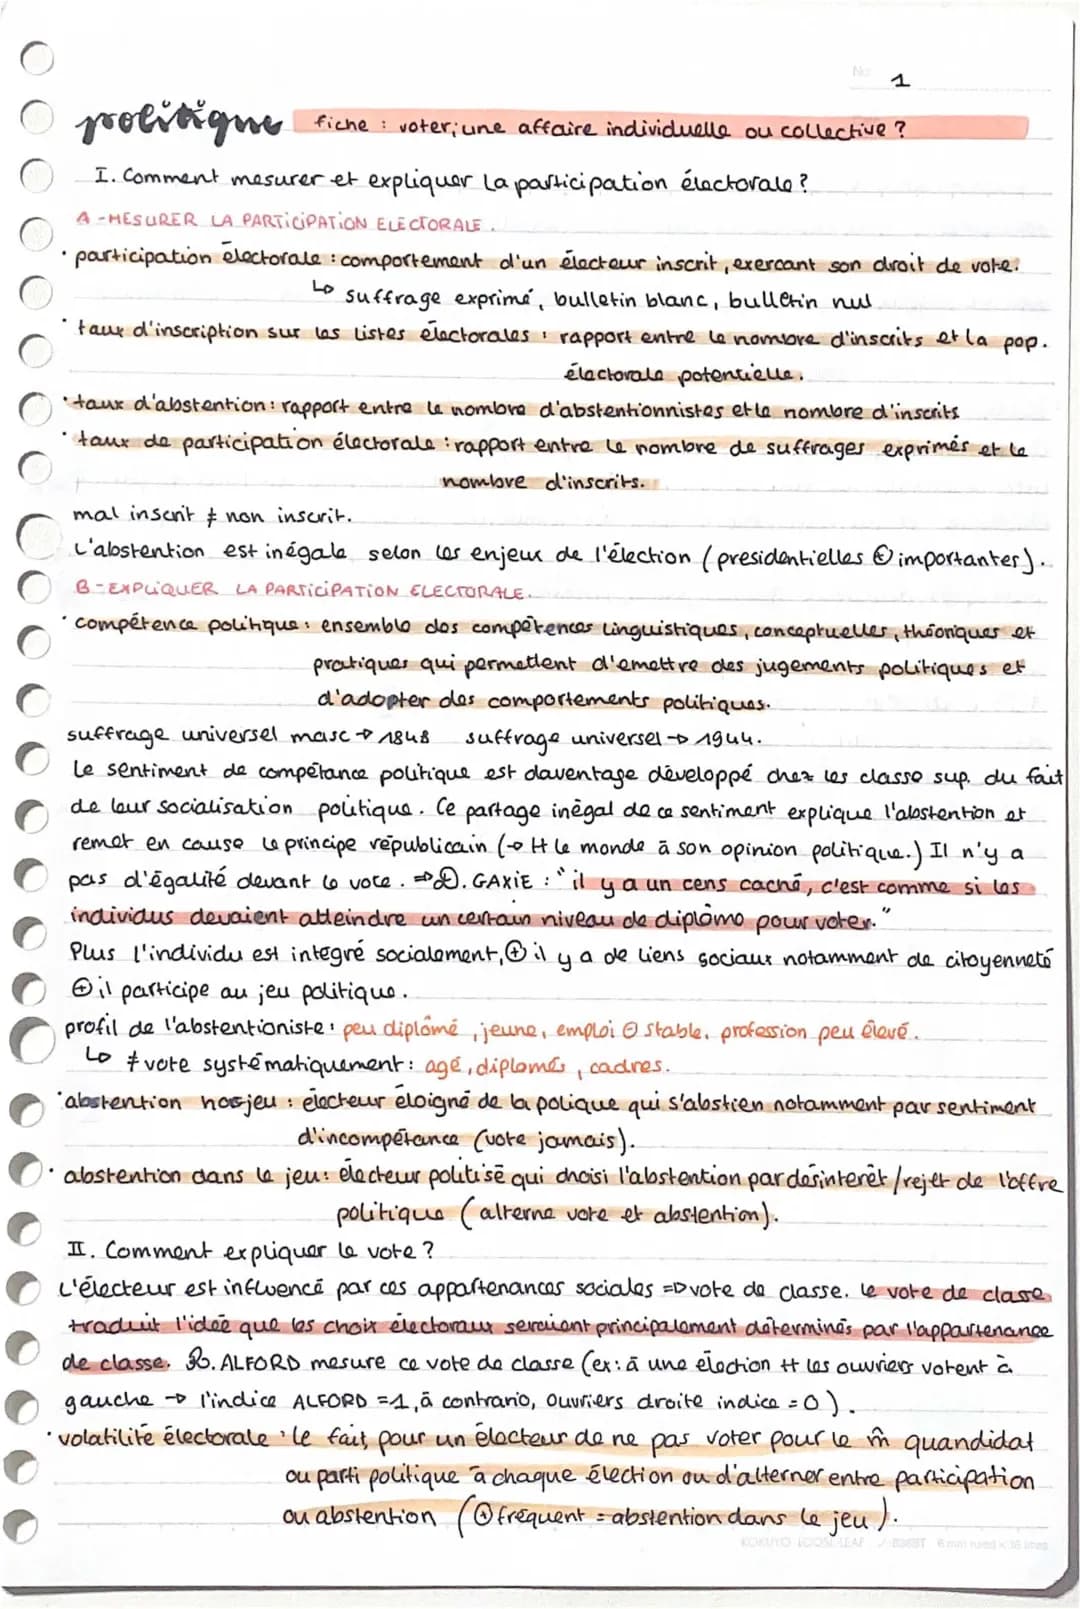 No.
1
politique fiche : voter; une affaire individuelle ou collective ?
I. Comment mesurer et expliquer la participation électorale ?
A - MESURER LA PARTICIPATION ELECTORALE.
· participation électorale : comportement d'un électeur inscrit, exercant son droit de vote.
↳ suffrage exprimé, bulletin blanc, bulletin nul
· taux d'inscription sur les listes électorales : rapport entre le nombre d'inscrits et la pop.
électorale potentielle.
· taux d'abstention : rapport entre le nombre d'abstentionnistes et le nombre d'inscrits
· taux de participation électorale : rapport entre le nombre de suffrages exprimés et le
nombre d'inscrits.
mal inscrit ≠ non inscrit.
L'abstention est inégale selon les enjeux de l'élection (presidentielles ⊕ importantes).
B - EXPLIQUER LA PARTICIPATION ELECTORALE.
· compétence politique : ensemble des compétences linguistiques, conceptuelles, théoriques et
pratiques qui permettent d'emettre des jugements politiques et
d'adopter des comportements politiques.
suffrage universel masc → 1848 suffrage universel → 1944.
Le sentiment de compétance politique est daventage développé chez les classe sup. du fait
de leur socialisation politique. Ce partage inégal de ce sentiment explique l'abstention et
remet en cause le principe républicain (→ tt le monde à son opinion politique.) Il n'y a
pas d'égalité devant le voce. ⇒ D. GAXIE : "il y a un cens caché, c'est comme si les
individus devaient atteindre un certain niveau de diplôme pour voter."
Plus l'individu est integré socialement, ⊕ il y a de liens sociaux notamment de citoyenneté
⊕ il participe au jeu politique.
profil de l'abstentioniste : peu diplômé, jeune, emploi ⊖ stable, profession peu élevé.
↳ ≠ vote systématiquement : agé, diplomés, cadres.
· abstention horsjeu : électeur éloigné de la polique qui s'abstien notamment par sentiment
d'incompétance (vote jamais).
· abstention dans le jeu : électeur politisé qui choisi l'abstention par désinterêt / rejet de l'offre
politique (alterne vote et abstention).
II. Comment expliquer le vote ?
L'électeur est influencé par ces appartenances sociales ⇒ vote de classe. le vote de classe
traduit l'idée que les choix électoraux seraient principalement déterminés par l'appartenance
de classe. R. ALFORD mesure ce vote de classe (ex : à une élection tt les ouvriers votent à
gauche → l'indice ALFORD = 1, à contrario, ouvriers droite indice = 0).
· volatilité électorale : le fait, pour un électeur de ne pas voter pour le m̂ quandidat
ou parti politique à chaque élection ou d'alterner entre participation
ou abstention (⊕ fréquent = abstention dans le jeu).
KOKUYO LOOSE-LEAF 6 mm ruled × 36 lines